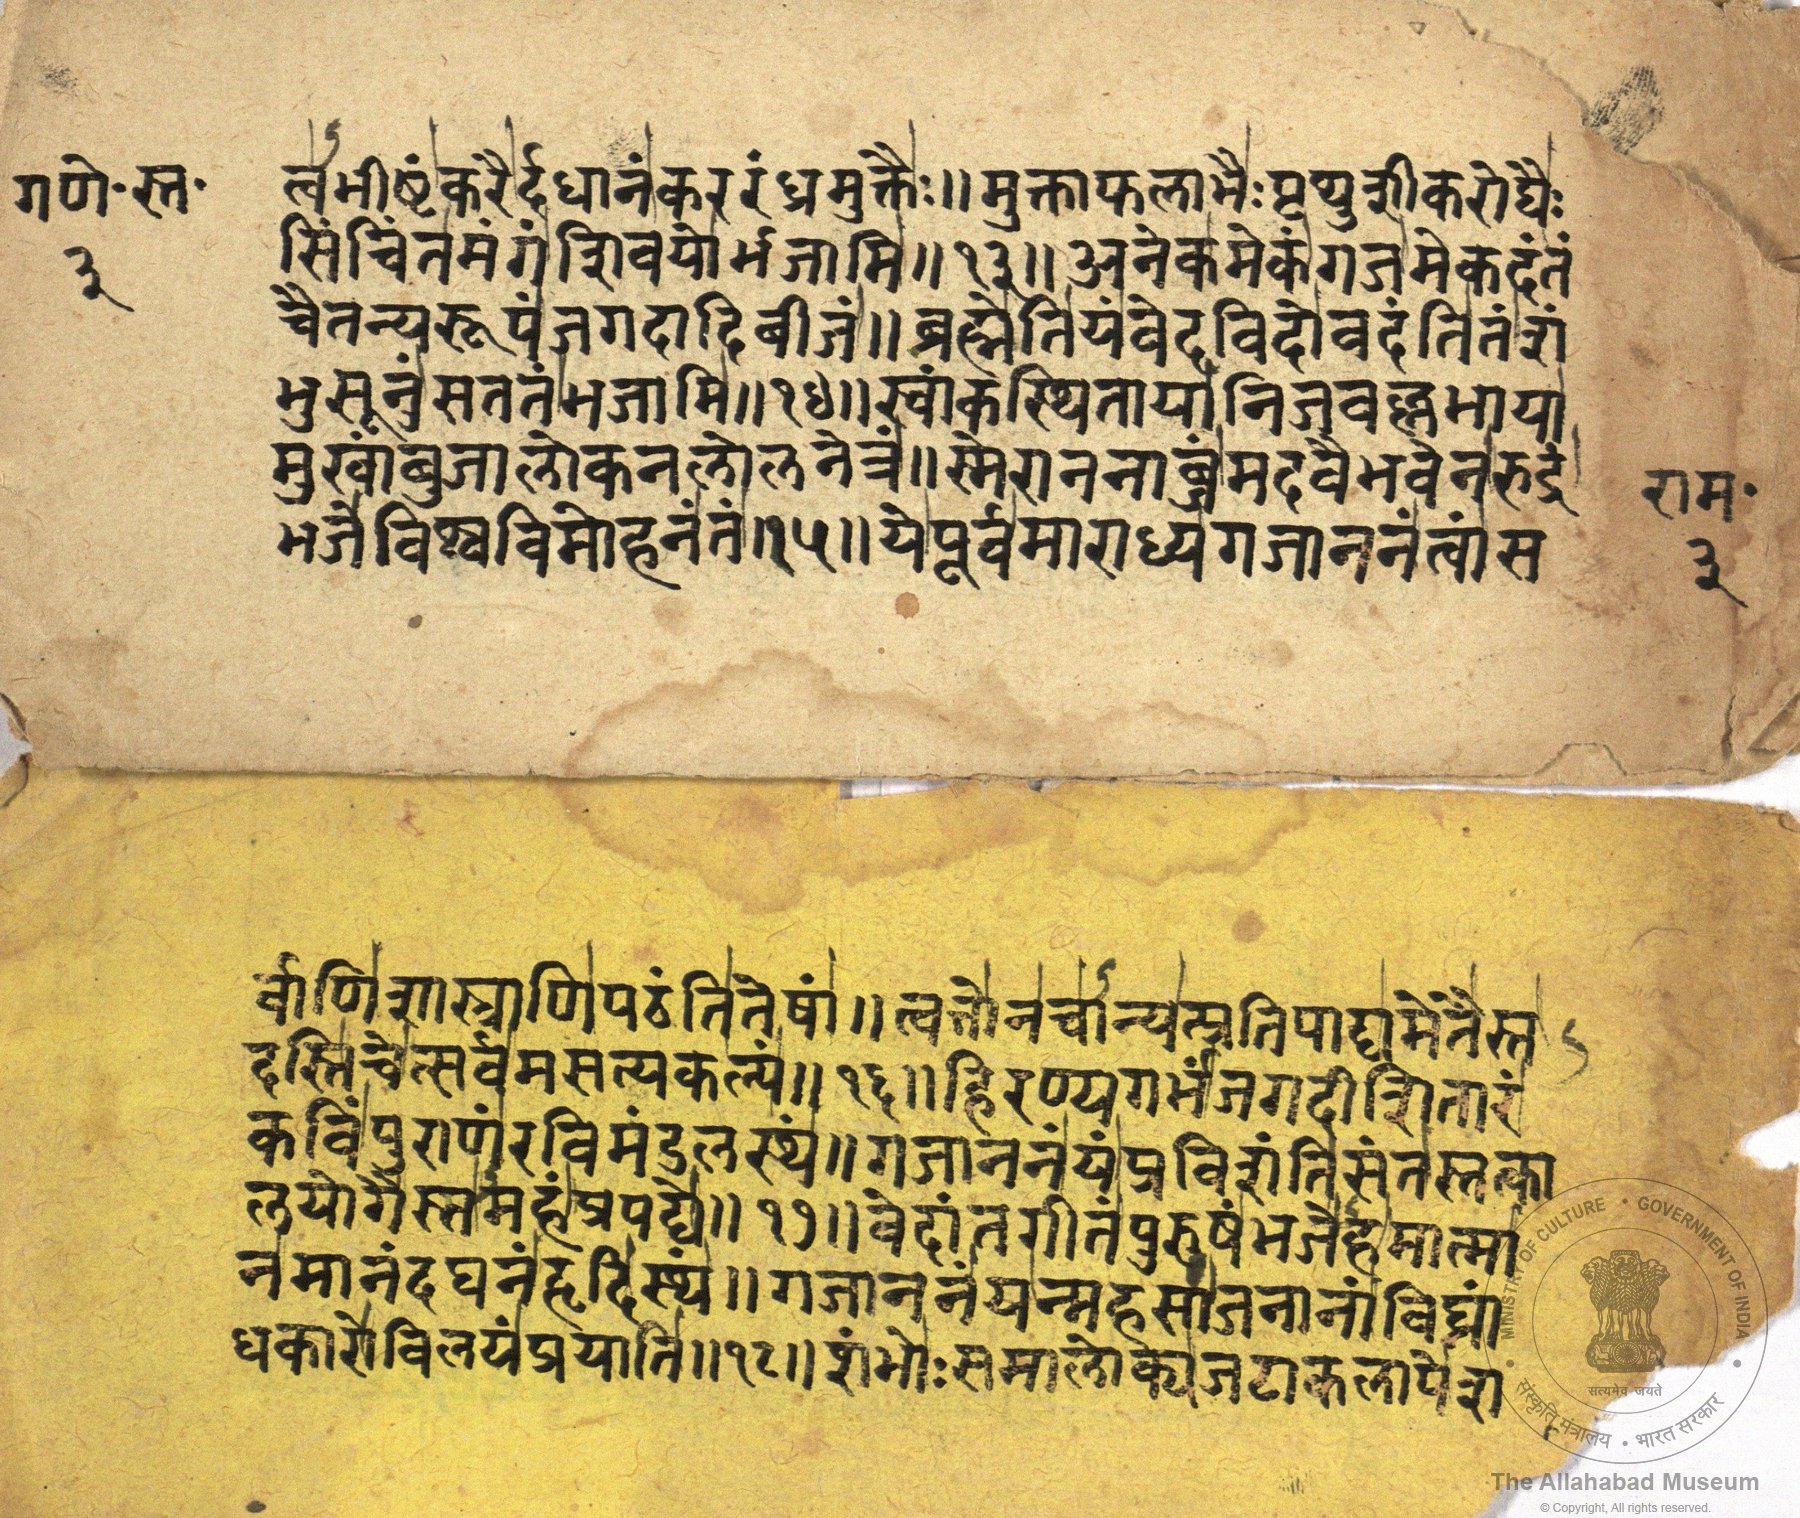 गणे॰ स्त॰
३
त्वमीष्टंकरैर्दधानंकररंध्रमुक्तैः॥ मुक्ताफलाभैःपृथुशीकरोघैः
सिंचिंतमंगंशिवयोर्भजामि॥ १३॥ अनेकमेकंगजमेकदंतं
चैतन्यरूपंजगदादिबीजं॥ ब्रह्मेतियंवेदविदोवदंतितंशं
भुसूनुंसततंभजामि॥ १४॥ स्वांकस्थितायानिजवल्लभाया
मुखांबुजालोकनलोलनेत्रं॥ स्मेराननाब्जंमदवैभवेनरुद्धं
भजेविश्वविमोहनंतं॥ १५॥ येपूर्वमाराध्यगजाननंत्वांस
राम॰
३
र्वाणिशास्त्राणिपठंतितेषां॥ त्वत्तोनचान्यत्प्रतिपाद्यमेतैस्त
दस्तिचेत्सर्वमसत्यकल्पं॥ १६॥ हिरण्यगर्भंजगदीशितारं
कविंपुराणंरविमंडलस्थं॥ गजाननंयंप्रविशंतिसंतस्तत्का
लयोगैस्तमहंप्रपद्ये॥ १७॥ वेदांतगीतंपुरुषंभजेहमात्मा
नमानंदघनंहृदिस्थं॥ गजाननंयन्महसाजनानांविघ्नां
धकारोविलयंप्रयाति॥ १८॥ शंभोःसमालोक्यजटाकलापेश
MINISTRY OF CULTURE • GOVERNMENT OF INDIA
सत्यमेव जयते
संस्कृति मंत्रालय • भारत सरकार
The Allahabad Museum
© Copyright, All rights reserved.